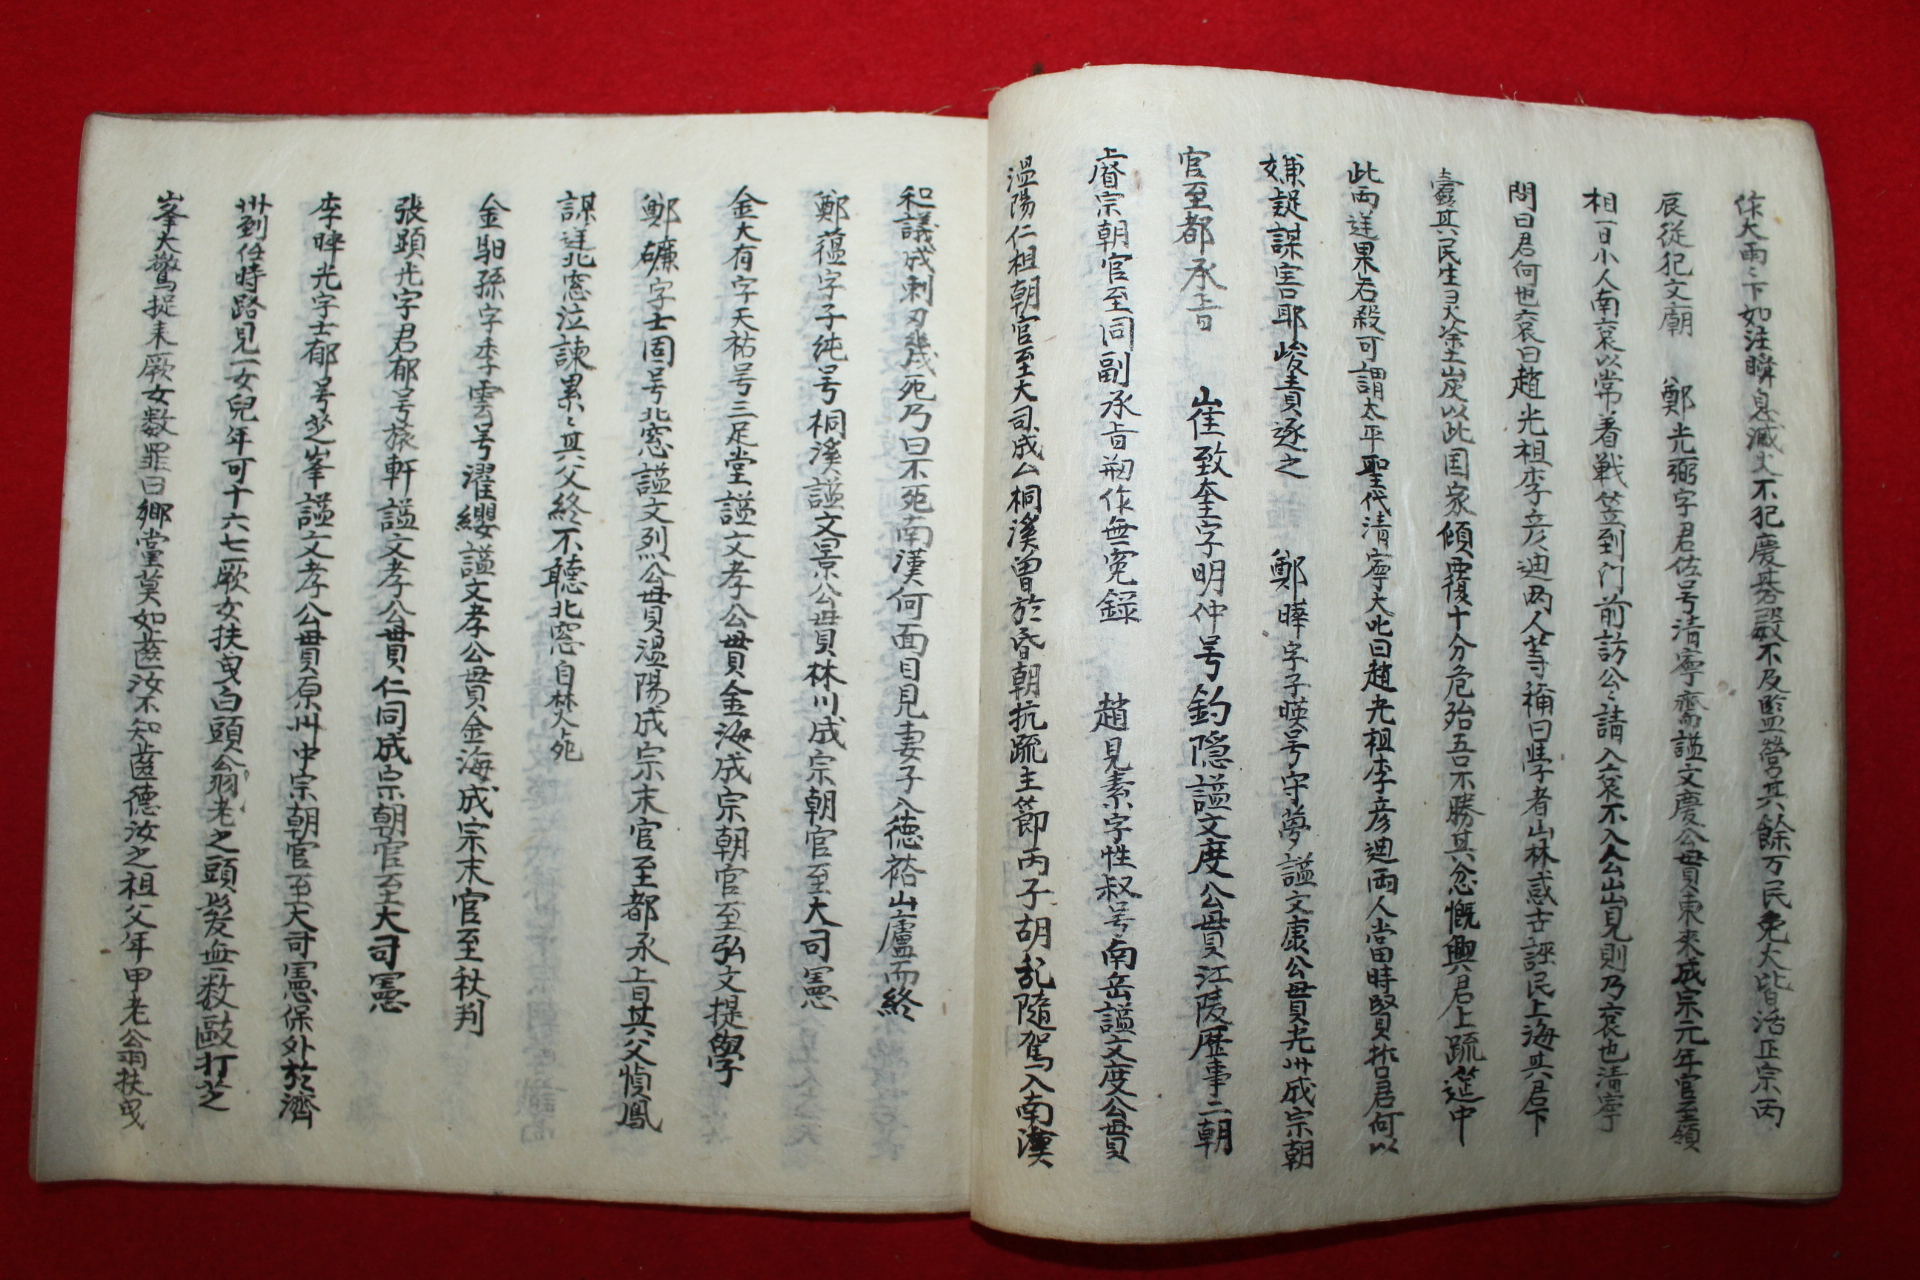 作大雨〻下如注瞬息滅火不犯慶基殿不及監營其餘万民免大皆活正宗丙
辰從祀文廟 鄭光弼字君佐号清寧齋謚文慶公貫東萊成宗元年官至領
相一日小人南袞以常着戰笠到门前訪公〻請入袞不入公出見則乃袞也清寧
問曰君何也袞曰趙光祖李彦迪两人等稱曰學者山林惑古誣民上海其君下
蠹其民生灵塗土岌以此国家傾覆十分危殆吾不勝其忿慨興君上疏筵中
此两逆果若殺可謂太平聖代清寧大叱曰趙光祖李彦迪两人當時賢哲君何以
嫌疑謀害耶峻責逐之 鄭曄字子暎号守夢謚文康公貫光州成宗朝
官至都承旨 崔致奎字明仲号釣隐謚文度公貫江陵歴事二朝
上睿宗朝官至同副承旨刱作無寃録 趙見素字性叔号南岳謚文度公貫
溫陽仁祖朝官至大司成公桐溪曾於昏朝抗疏主節丙子胡乱隨駕入南漢
和議成刺刃幾死乃曰不死南漢何面目見妻子入德裕山廬而終
鄭蘊字子純号桐溪謚文景公貫林川成宗朝官至大司憲
金大有字天祐号三足堂謚文孝公貫金海成宗朝官至弘文提學
鄭𥗴字士固号北窓謚文烈公貫溫陽成宗末官至都承旨其父愼鳳
謀逆北窓泣諫累〻其父終不聽北窓自焚死
金馹孫字季雲号濯纓謚文孝公貫金海成宗末官至秋判
張顕光字君郁号旅軒謚文孝公貫仁同成宗朝官至大司憲
李晬光字士郁号芝峯謚文孝公貫原州中宗朝官至大司憲保外於濟
州到任時路見一女兒年可十六七厥女扶曳白頭翁老之頭髪無数敺打芝
峯大驚捉来厥女数罪曰郷堂莫如齒汝不知齒德汝之祖父年甲老翁扶曳